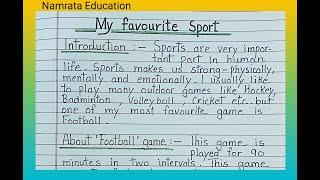 Namrata Education
My favourite Sport
Introduction :- Sports are very impor-
tant part in human
life. Sports makes us strong-physically,
mentally and emotionally. I usually like
to play many outdoor games like Hockey,
Badminton, Volleyball, Cricket etc. but
one of my most favourite game is
Football.
About 'Football' game:- This game is
played for 90
minutes in two intervals. This game